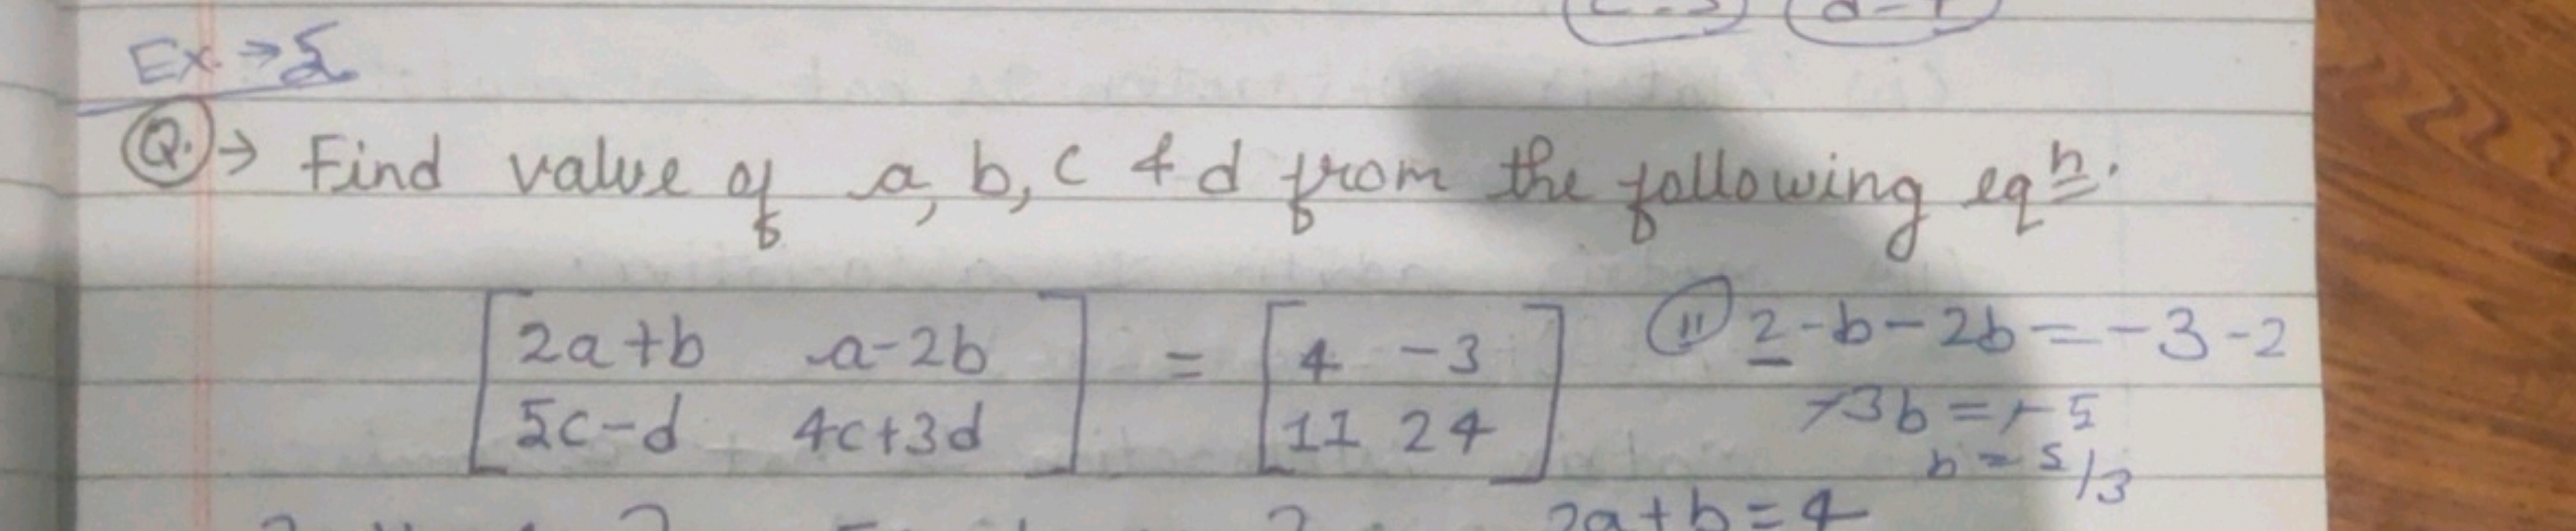 Ex. → 5
Q. → Find value of a, b, c & d from the following eqⁿ.
[2a+b a-2b] = [4 -3]
[5c-d 4c+3d] [11 24]
(ii) 2-b-2b=-3-2
-3b=-5
b=5/3
2a+b=4